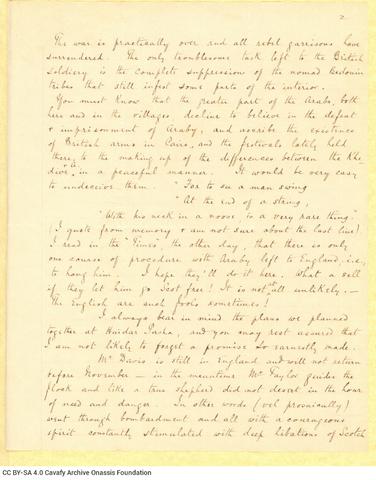 2.
The war is practically over and all rebel garrisons have
surrendered. The only troublesome task left to the British
soldiery is the complete suppression of the nomad Bedouin
tribes that still infest some parts of the interior.
You must know that the greater part of the Arabs, both
here and in the villages decline to believe in the defeat
& imprisonment of Araby, and ascribe the existence
of British arms in Cairo, and the festivals lately held
there, to the making up of the differences between the Khe
dive & A. in a peaceful manner. It would be very easy
to undeceive them. "For to see a man swing
"At the end of a string,
"With his neck in a noose, is a very rare thing."
(I quote from memory & am not sure about the last line)
I read in the "Times", the other day, that there is only
one course of procedure with Araby left to England, i.e.,
to hang him. I hope they'll do it here. What a sell
if they let him go Scot free! It is not at all unlikely.—
The English are such fools sometimes!
I always bear in mind the plans we planned
together at Haidar-Pasha, and you may rest assured that
I am not likely to forget a promise so earnestly made.
Mr Davis is still in England and will not return
before November — in the meantime Mr Taylor guides the
flock and like a true shepherd did not desert in the hour
of need and danger. In other words (vel prosaically)
went through bombardment and all with a courageous
spirit constantly stimulated with deep libations of Scotch
CC BY-SA 4.0 Cavafy Archive Onassis Foundation